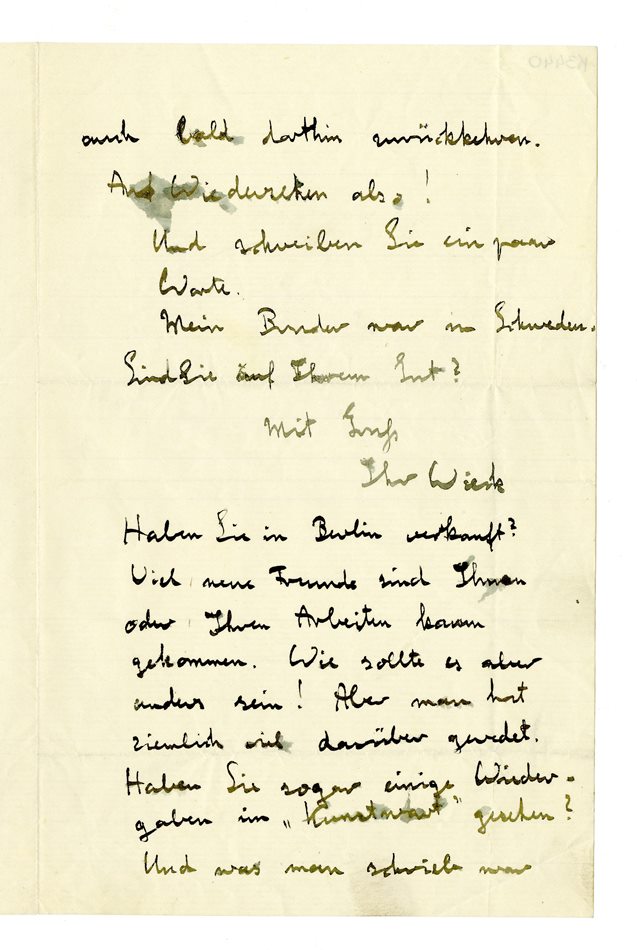 K3440
auch bald dorthin zurückkehren.
Auf Wiedersehen also!
Und schreiben Sie ein paar
Worte.
Mein Bruder war in Schweden.
Sind Sie auf Ihrem Gut?
Mit Gruß
Ihr Wieck
Haben Sie in Berlin verkauft?
Viel neue Freunde sind Ihnen
oder Ihren Arbeiten kaum
gekommen. Wie sollte es aber
anders sein! Aber man hat
ziemlich viel darüber geredet.
Haben Sie sogar einige Wieder-
gaben im „Kunstwart" gesehen?
Und was man schrieb war